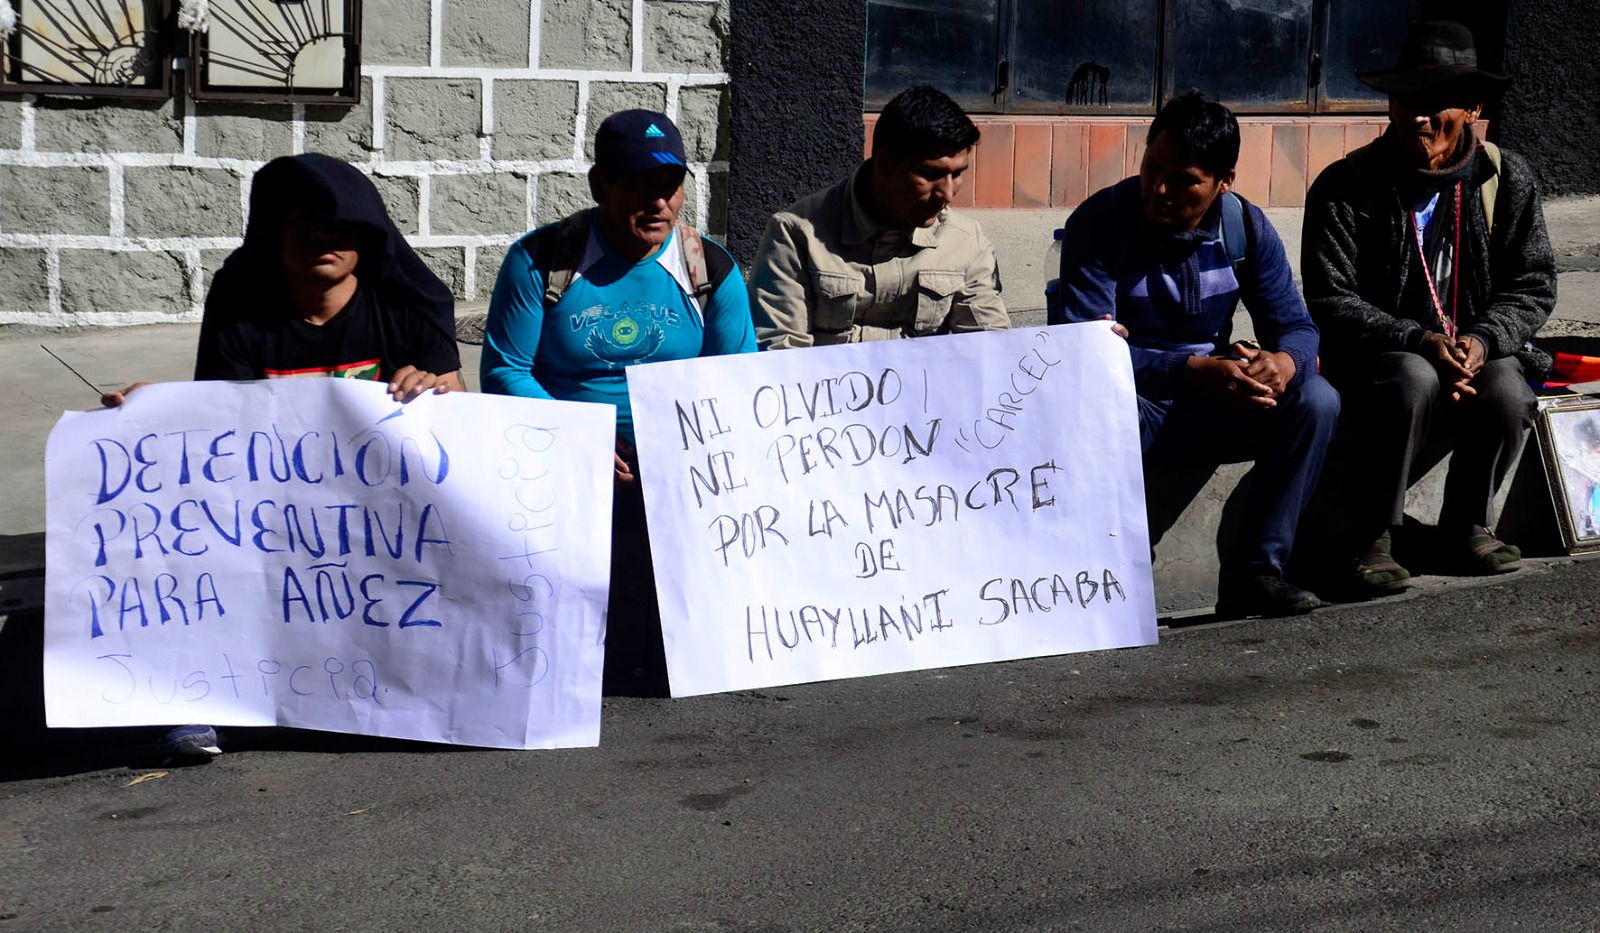 DETENCIÓN
PREVENTIVA
PARA AÑEZ
Justicia.
Justicia
NI OLVIDO
NI PERDON "CARCEL"
POR LA MASACRE
DE
HUAYLLANI SACABA